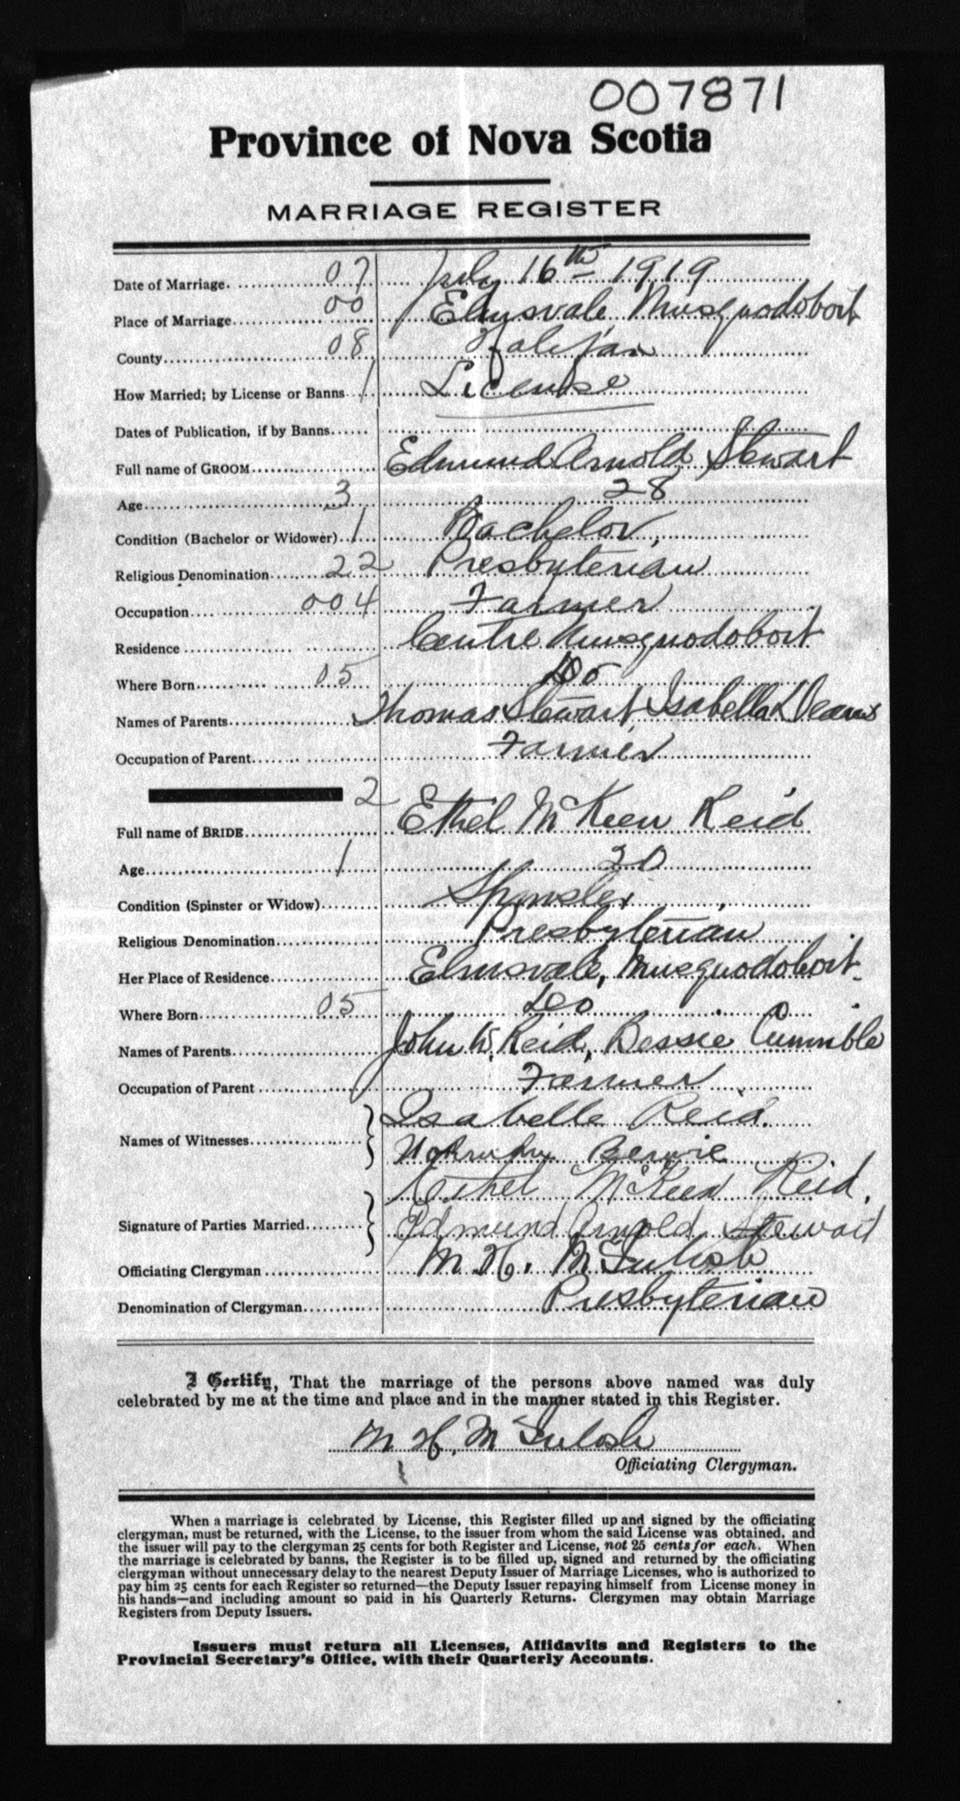 007871
Province of Nova Scotia
MARRIAGE REGISTER
Date of Marriage 07 July 16th 1919
Place of Marriage 00 Elmsvale Musquodoboit
County 08 Halifax
How Married; by License or Banns 1 License
Dates of Publication, if by Banns
Full name of GROOM Edmund Arnold Stewart
Age 3 28
Condition (Bachelor or Widower) 1 Bachelor,
Religious Denomination 22 Presbyterian
Occupation 004 Farmer
Residence Centre Musquodoboit
Where Born 05 Do
Names of Parents Thomas Stewart Isabella Deans
Occupation of Parent Farmer
2
Full name of BRIDE Ethel McKeen Reid
Age 1 20
Condition (Spinster or Widow) Spinster
Religious Denomination Presbyterian
Her Place of Residence Elmsvale, Musquodoboit
Where Born 05 Do
Names of Parents John W. Reid, Bessie
Occupation of Parent Farmer
Names of Witnesses Isabelle Reid.
Signature of Parties Married Ethel McKeen Reid.
Edmund Arnold Stewart
Officiating Clergyman M. H. McIntosh
Denomination of Clergyman Presbyterian
I Certify, That the marriage of the persons above named was duly
celebrated by me at the time and place and in the manner stated in this Register.
M H. McIntosh
Officiating Clergyman.
When a marriage is celebrated by License, this Register filled up and signed by the officiating
clergyman, must be returned, with the License, to the issuer from whom the said License was obtained, and
the issuer will pay to the clergyman 25 cents for both Register and License, not 25 cents for each. When
the marriage is celebrated by banns, the Register is to be filled up, signed and returned by the officiating
clergyman without unnecessary delay to the nearest Deputy Issuer of Marriage Licenses, who is authorized to
pay him 25 cents for each Register so returned—the Deputy Issuer repaying himself from License money in
his hands—and including amount so paid in his Quarterly Returns. Clergymen may obtain Marriage
Registers from Deputy Issuers.
Issuers must return all Licenses, Affidavits and Registers to the
Provincial Secretary's Office, with their Quarterly Accounts.